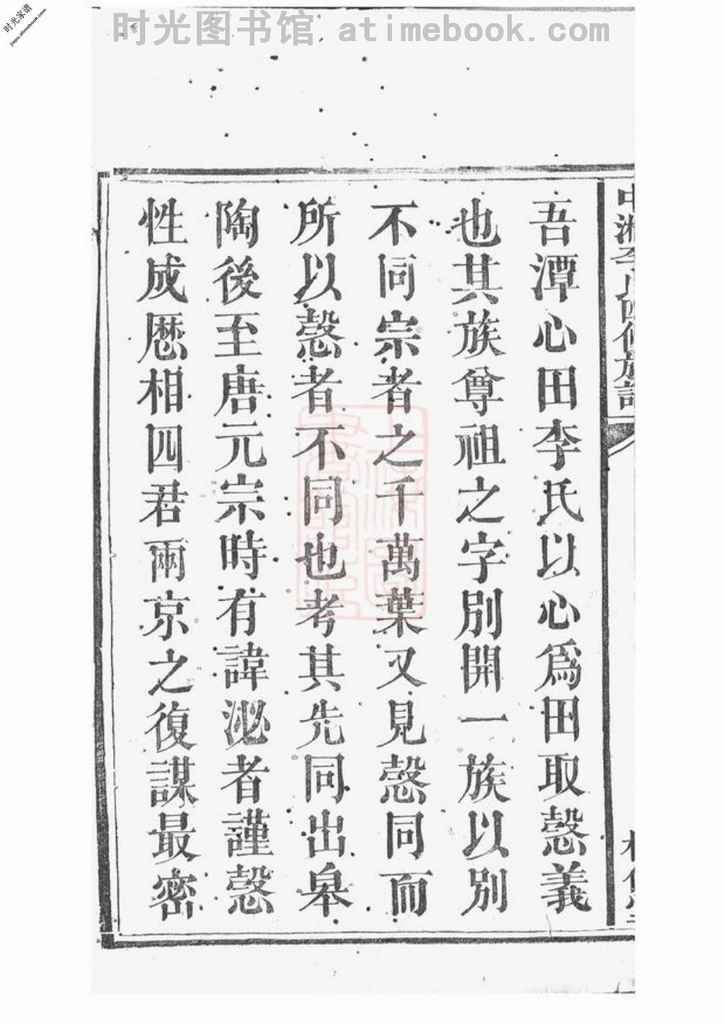 时光家谱
时光图书馆 . atimebook.com
吾潭心田李氏以心爲田取慤義
也其族尊祖之字別開一族以別
不同宗者之千萬葉又見慤同而
所以慤者不同也考其先同出皋
陶後至唐元宗時有諱泌者謹慤
性成厯相四君兩京之復謀最密